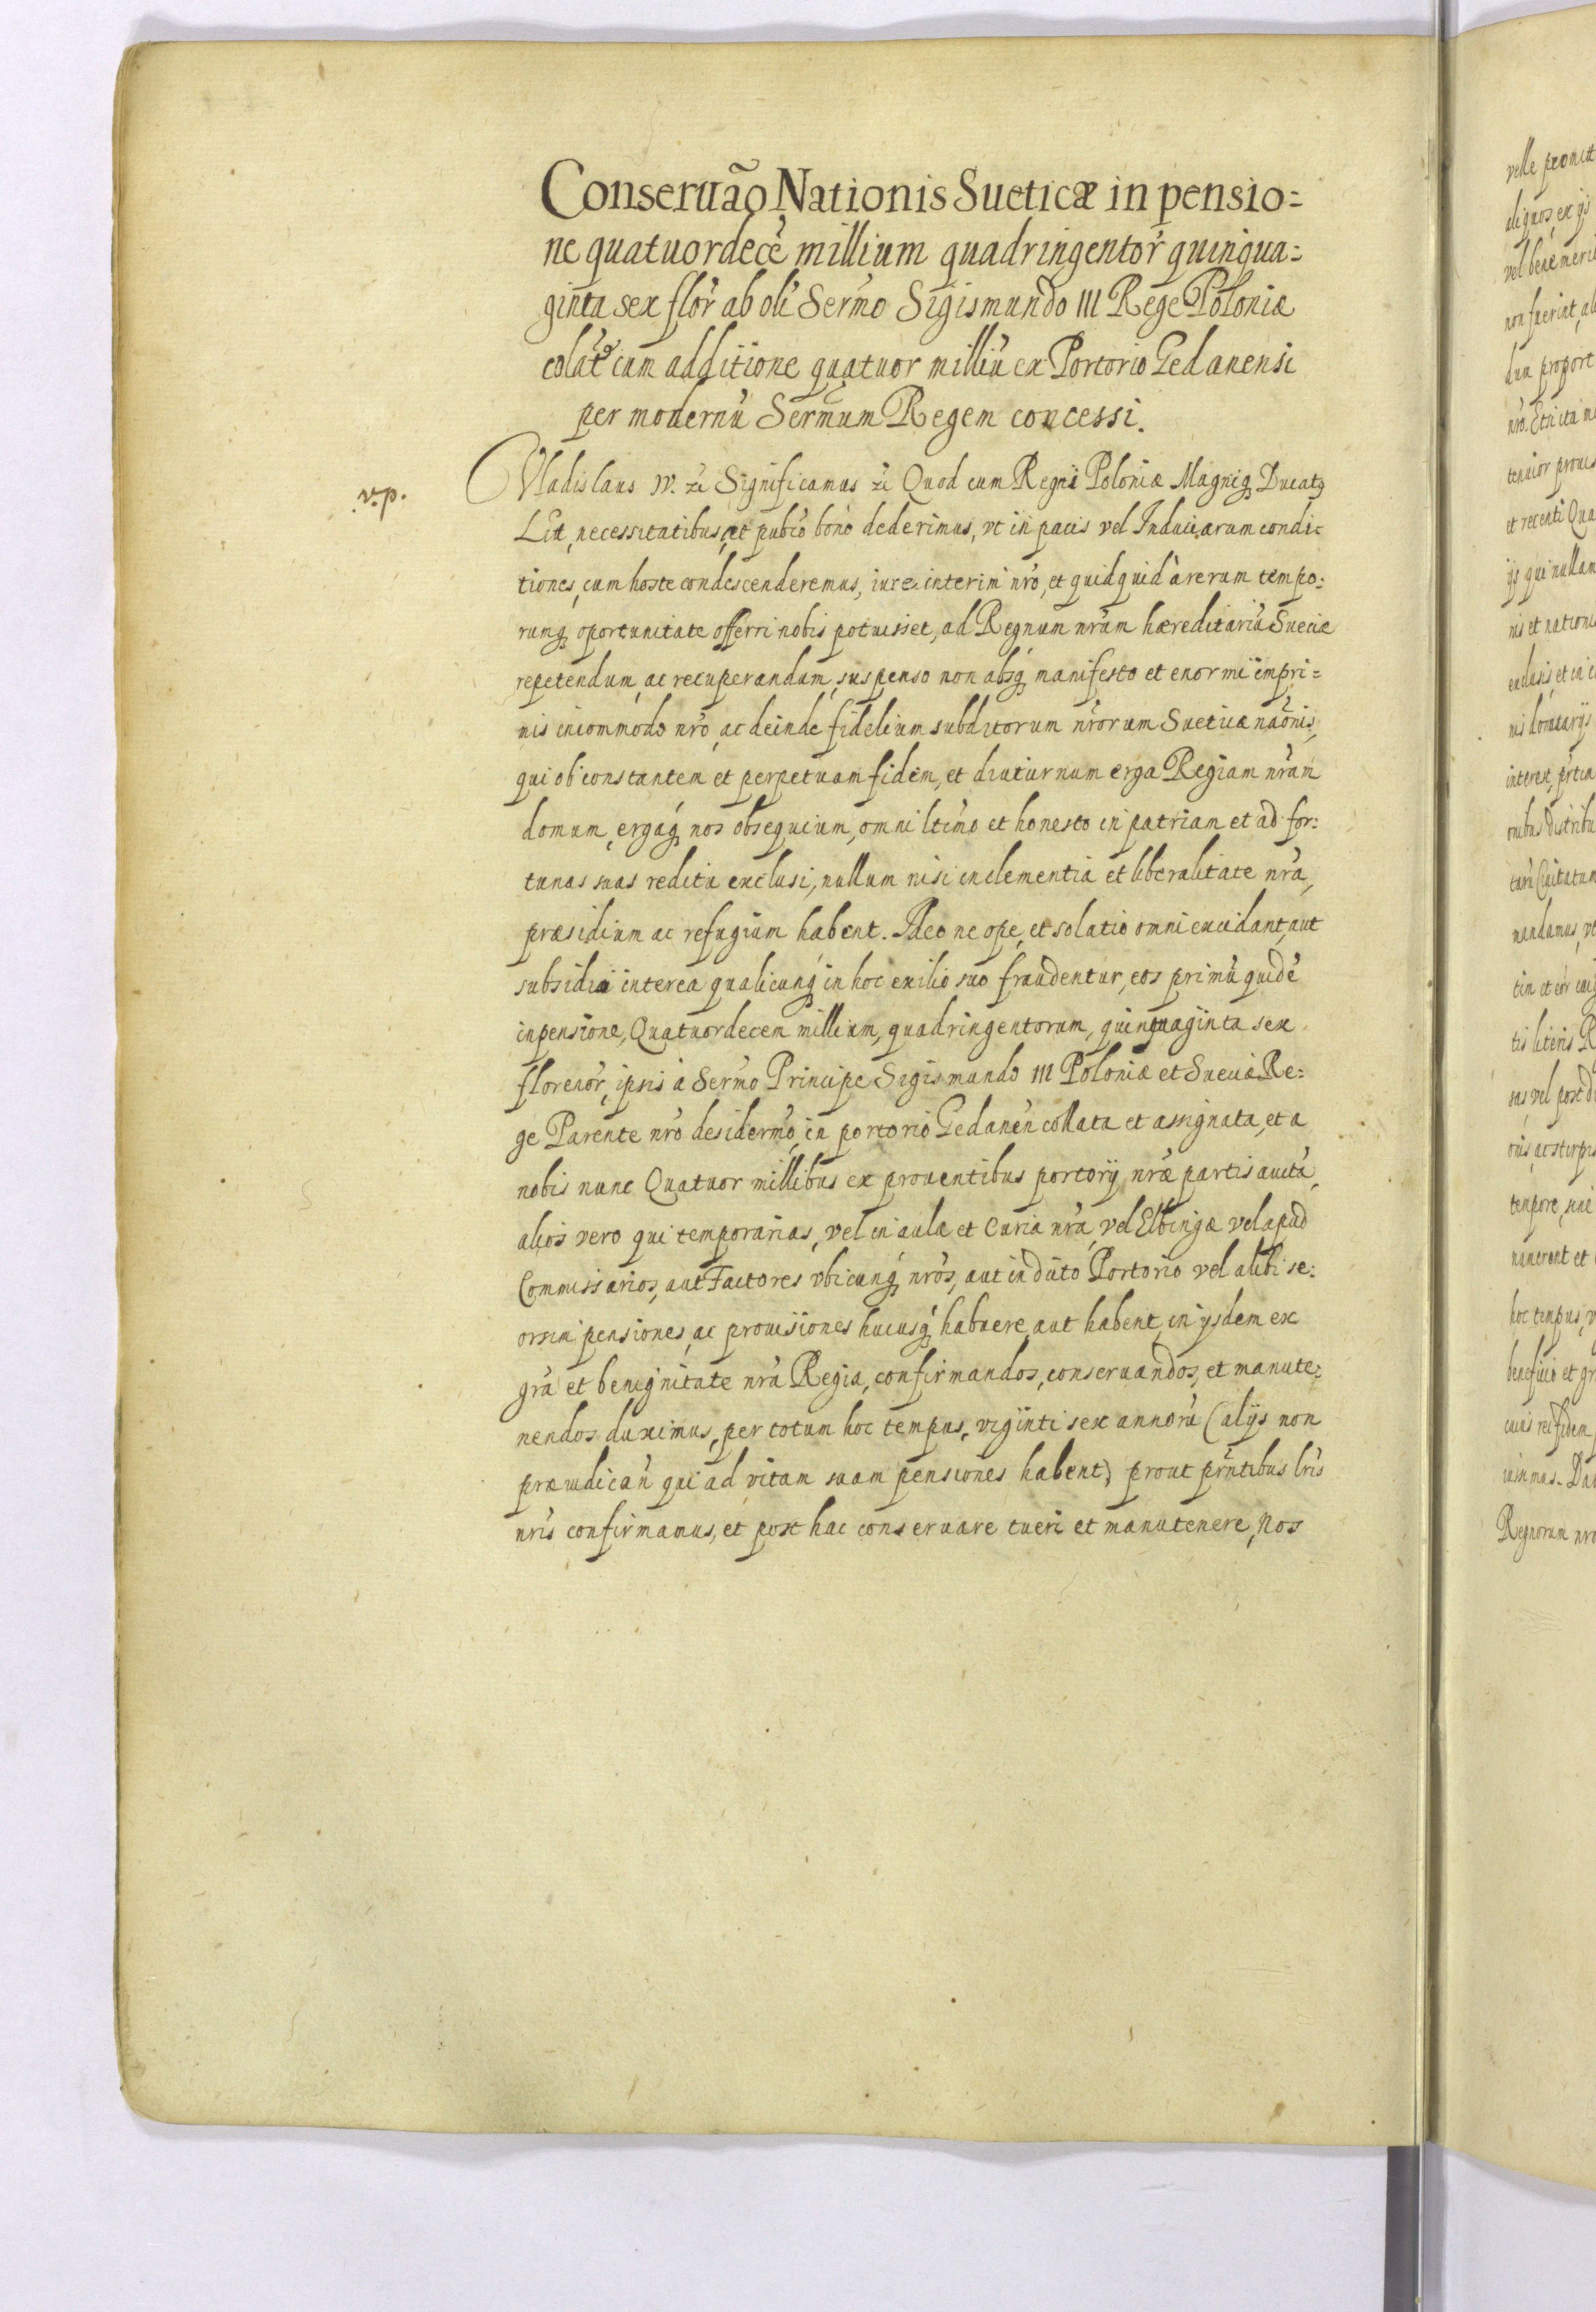 Conseruão Nationis Sueticæ in pensio=
ne quatuordecē millium quadringentor̃ quinqua=
ginta sex flor̃ ab oli Sermo Sigismundo III Rege Poloniæ
colat9 cum additione quatuor milliū ex Portorio Gedanensi
per modernū Sermum Regem concessi.
v. p.
Vladislaus IV. zc Significamus zc Quod cum Regni Poloniæ Magniq Ducat9
Lit, necessitatibus, et pubco bono dederimus, vt in pacis vel Induciarum condi=
tiones, cum hoste condescenderemus, iure interim nro, et quidquid à rerum tempo=
rumq oportunitate offerri nobis potuisset, ad Regnum nrum hæreditariū Sueciæ
repetendum, ac recuperandum, suspenso non absq manifesto et enormi impri=
nis incommodo nro, ac deinde fidelium subditorum nrorum Sueticæ naõnis,
qui ob constantem et perpetuam fidem, et diuturnum erga Regiam nram
domum, ergaq nos obsequium, omni ltimo et honesto in patriam et ad for=
tunas suas reditu exclusi, nullum nisi in clementia et liberalitate nra,
præsidium ac refugium habent. Ideo ne ope, et solatio omni excidant, aut
subsidio interea qualicunq in hoc exilio suo fraudentur, eos primū quidē
in pensione, Quatuordecem millium, quadringentorum, quinquaginta sex
florenor̃, ipsis à Sermo Principe Sigismundo III Poloniæ et Sueciæ Re=
ge Parente nro desidermo, in portorio Gedanen collata et assignata, et a
nobis nunc Quatuor millibus ex prouentibus portorij nræ partis auctā,
alios vero qui temporarias, vel in aula et Curia nra, vel Elbingæ vel apud
Commissarios, aut Factores vbicunq nros, aut in dicto Portorio vel alibi se=
orsim pensiones, ac prouisiones hucusq habuere aut habent, in ijsdem ex
gra et benignitate nra Regia, confirmandos, conseruandos, et manute=
nendos duximus, per totum hoc tempus, viginti sex annorū (alijs non
præiudican qui ad vitam suam pensiones habent) prout pntibus lris
nris confirmamus, et post hac conseruare tueri et manutenere, Nos